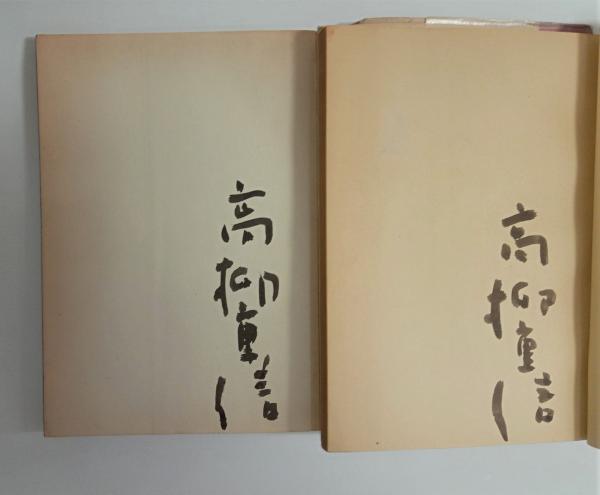 高柳重信
高柳重信